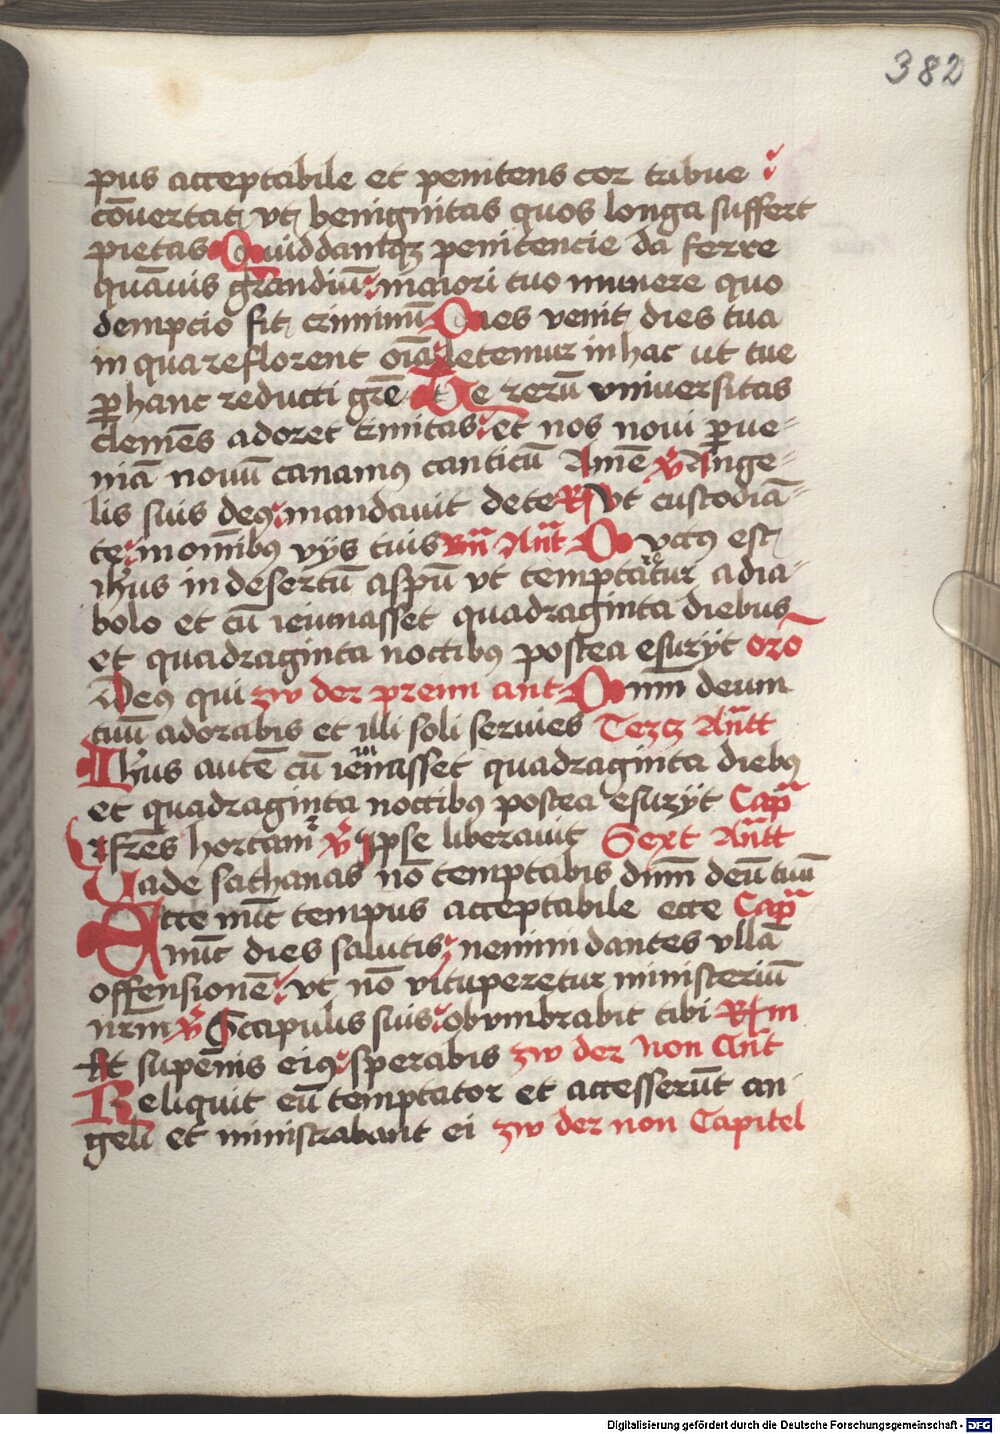 382
pus acceptabile et penitens cor tribue
cōuertat vt benignitas quos longa suffert
pietas Quiddamqꝫ penitencie da ferre
quāuis grandiū maiori tuo munere quo
dempcio fit criminū Dies venit dies tua
in qua reflorent oīa letemur in hac ut tue
ꝑ hanc reducti grē Te rerū vniuersitas
clemēs adoret trinitas et nos noui ꝑ ue-
niā nouū canamꝰ canticū Amē v̄ Ange-
lis suis deꝰ mandauit de te R Vt custodiā-
te in omībꝰ vijs tuis Bn̄ An̄t Ductꝰ est
ihūs in desertū a spū vt temptaretur a dia-
bolo et cū ieiunasset quadraginta diebus
et quadraginta noctibꝰ postea esurijt oro̅
Deꝰ qui zw der preim ant Dnm̄ deum
tuū adorabis et illi soli seruies Tercz An̄tt
Ihūs autē cū ieiunasset quadraginta diebꝰ
et quadraginta noctibꝰ postea esurijt Cap̄
frēs hortam v̄ Ipse liberauit Sext An̄tt
Vade sathanas nō temptabis dnm̄ deū tuū
Ecce nūc tempus acceptabile ecce Cap̄
nūc dies salutis nemini dantes vllā
offensionē vt nō vituperetur ministeriū
nrm̄ v̄ Scapulis suis obvmbrabit tibi Rm
Et sup̱enis eiꝰ sperabis zw der Non An̄t
Reliquit eū temptator et accesserūt an
geli et ministrabant ei zw der non Capitel
Digitalisierung gefördert durch die Deutsche Forschungsgemeinschaft - DFG